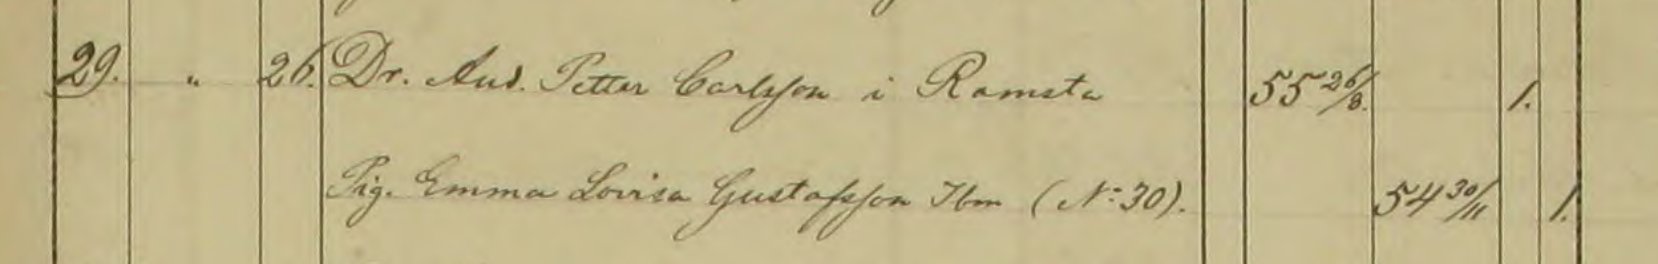 29. " 26. Dr. And. Petter Carlsson i Ramsta 55 26/8. 1.
Pig. Emma Lovisa Gustafsson Ibm (N:30). 54 30/11 1.